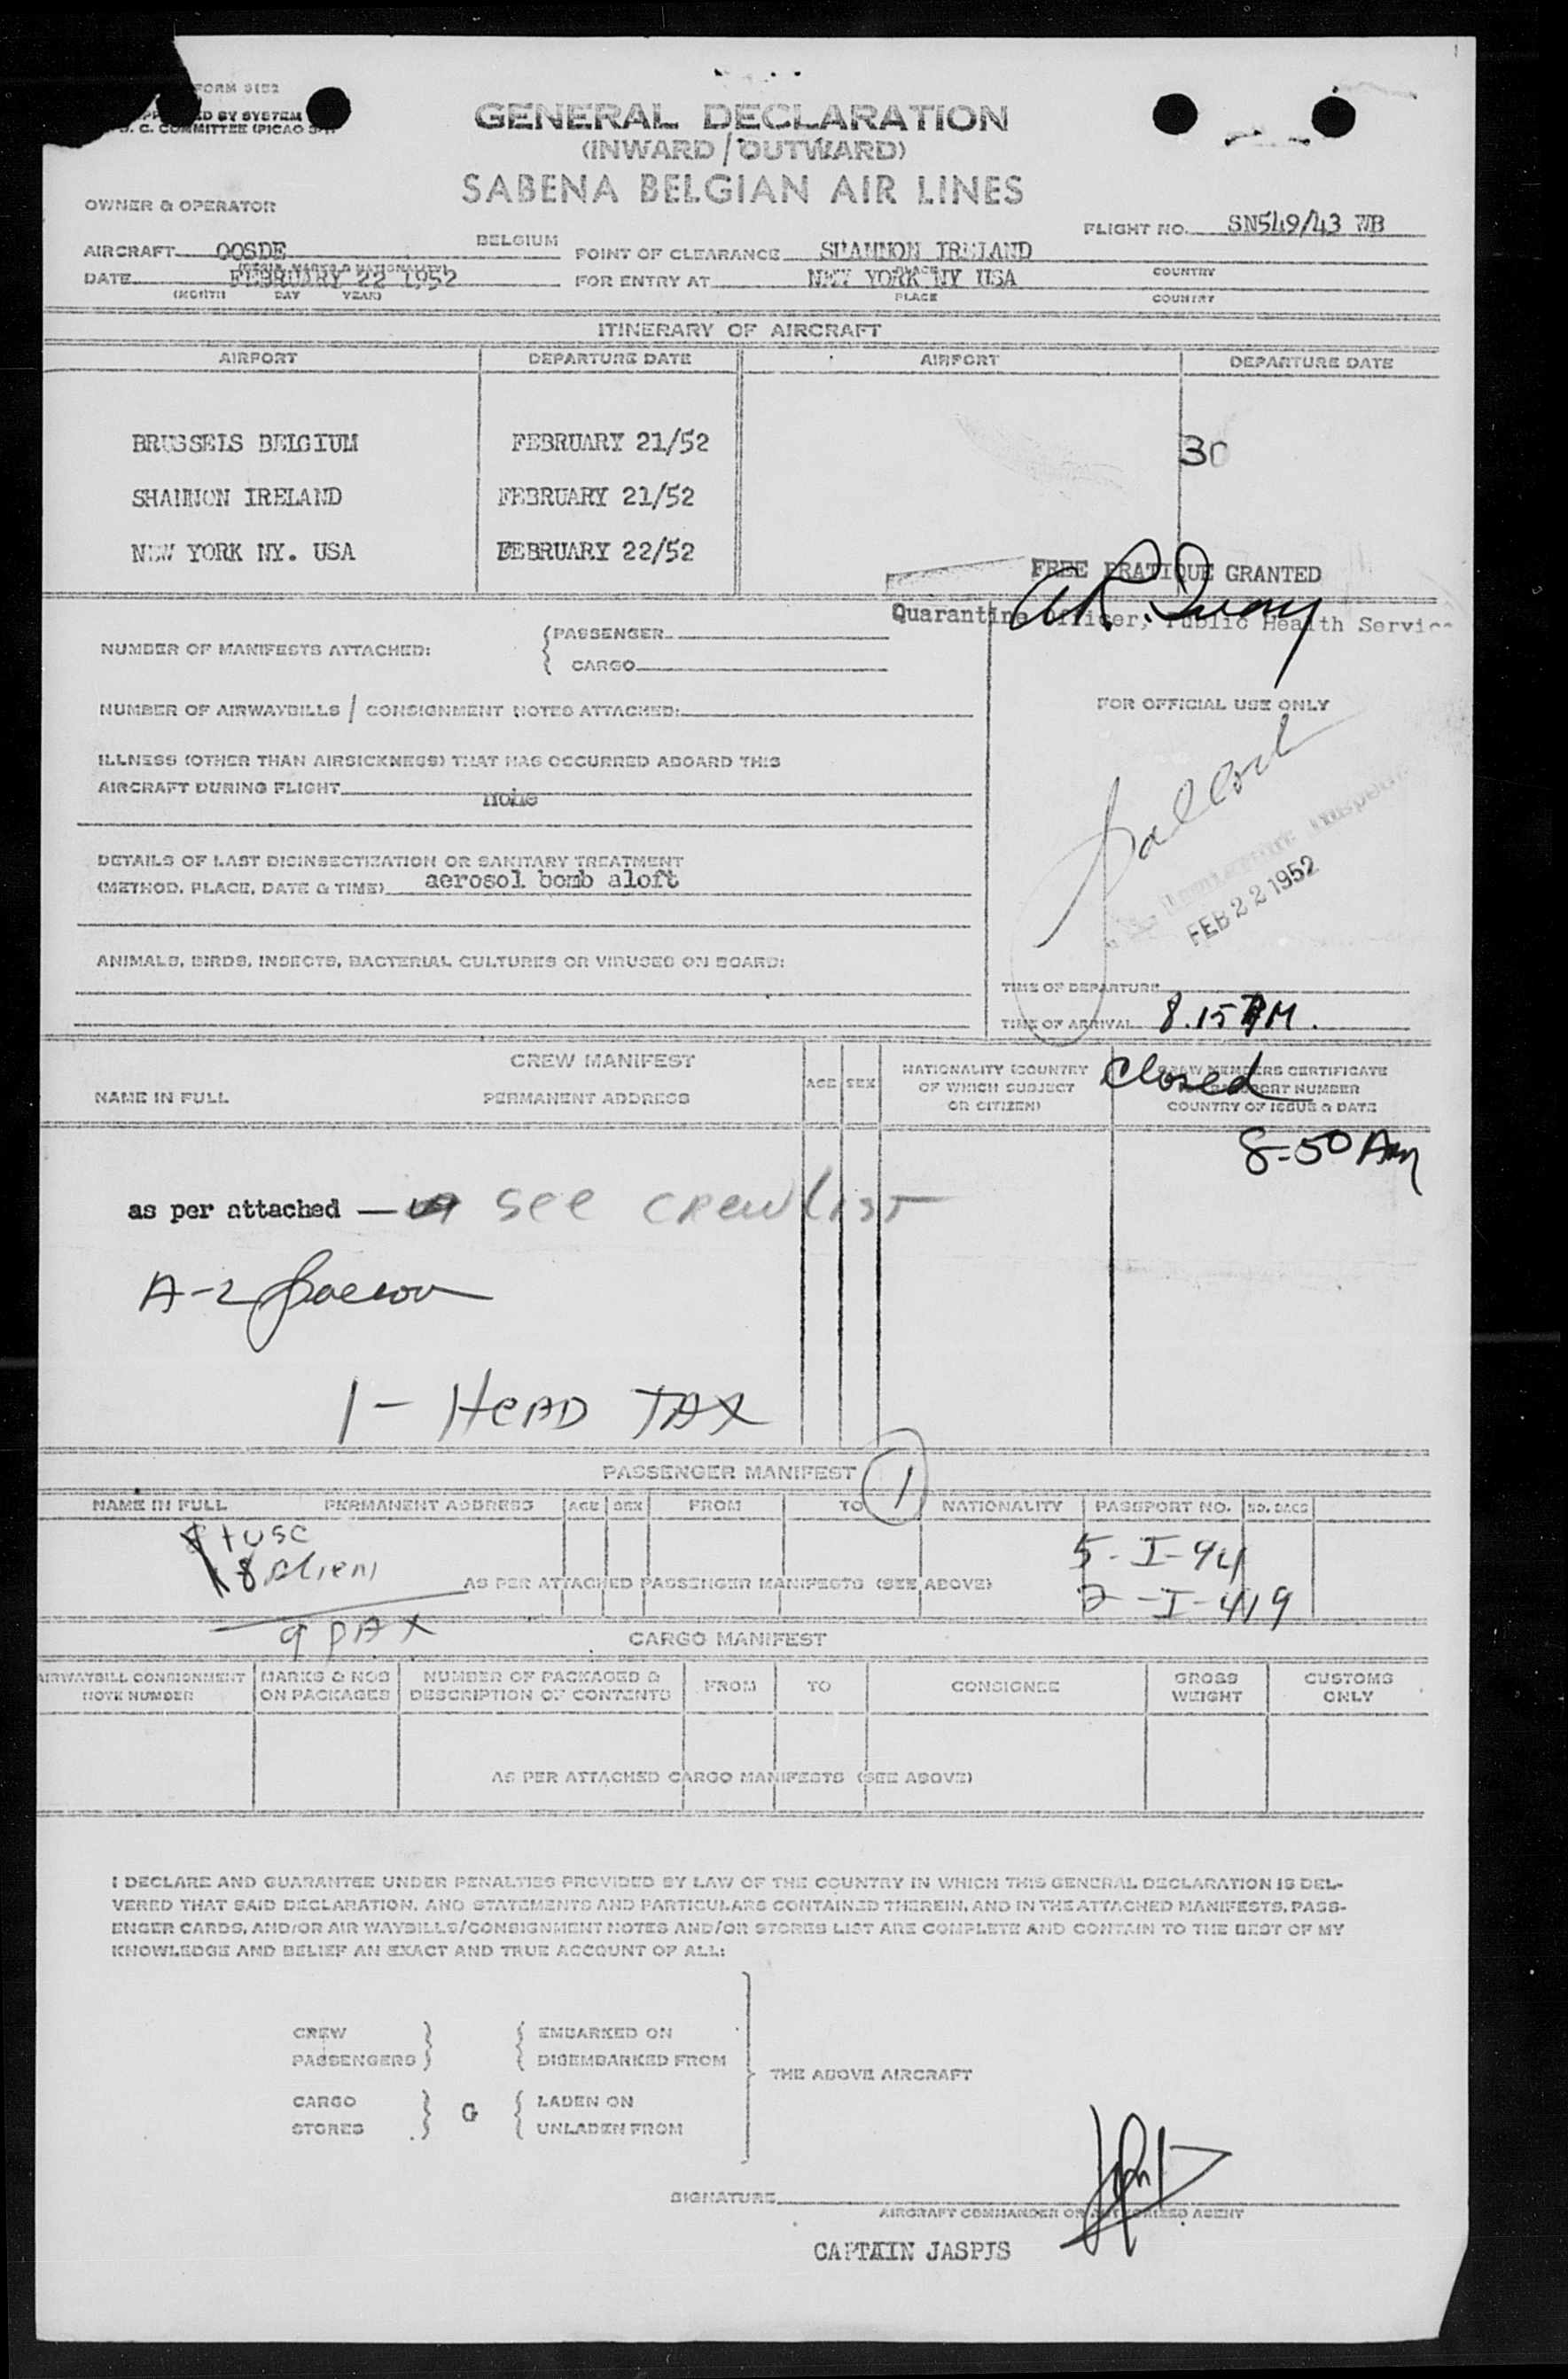 FORM 3152
ED BY SYSTEM
COMMITTEE (PICAO
GENERAL DECLARATION
(INWARD / OUTWARD)
SABENA BELGIAN AIR LINES
OWNER & OPERATOR
FLIGHT NO. SN549/43 WB
AIRCRAFT OOSDE BELGIUM POINT OF CLEARANCE SHANNON IRELAND
DATE FEBRUARY 22 1952 FOR ENTRY AT NEW YORK NY USA
(MONTH DAY YEAR) PLACE COUNTRY
ITINERARY OF AIRCRAFT
AIRPORT DEPARTURE DATE AIRPORT DEPARTURE DATE
BRUSSELS BELGIUM FEBRUARY 21/52
SHANNON IRELAND FEBRUARY 21/52
NEW YORK NY. USA FEBRUARY 22/52
FREE PRATIQUE GRANTED
Quarantine Officer, Public Health Service
NUMBER OF MANIFESTS ATTACHED: PASSENGER
CARGO
NUMBER OF AIRWAYBILLS / CONSIGNMENT NOTES ATTACHED:
FOR OFFICIAL USE ONLY
ILLNESS (OTHER THAN AIRSICKNESS) THAT HAS OCCURRED ABOARD THIS
AIRCRAFT DURING FLIGHT none
DETAILS OF LAST DISINSECTIZATION OR SANITARY TREATMENT
(METHOD, PLACE, DATE & TIME) aerosol bomb aloft
FEB 22 1952
ANIMALS, BIRDS, INSECTS, BACTERIAL CULTURES OR VIRUSES ON BOARD:
TIME OF DEPARTURE
TIME OF ARRIVAL 8.15 AM.
Closed
8-50 AM
CREW MANIFEST
NAME IN FULL PERMANENT ADDRESS AGE SEX NATIONALITY (COUNTRY OF WHICH SUBJECT OR CITIZEN) CREW MEMBERS CERTIFICATE OR PASSPORT NUMBER COUNTRY OF ISSUE & DATE
as per attached — see crew list
A-2
1- HEAD TAX
PASSENGER MANIFEST 1
NAME IN FULL PERMANENT ADDRESS AGE SEX FROM TO NATIONALITY PASSPORT NO. NO. BAGS
1 USC
8 Alien
5-I-94
AS PER ATTACHED PASSENGER MANIFESTS (SEE ABOVE)
2-I-419
9 PAX
CARGO MANIFEST
AIRWAYBILL CONSIGNMENT NOTE NUMBER MARKS & NOS ON PACKAGES NUMBER OF PACKAGES & DESCRIPTION OF CONTENTS FROM TO CONSIGNEE GROSS WEIGHT CUSTOMS ONLY
AS PER ATTACHED CARGO MANIFESTS (SEE ABOVE)
I DECLARE AND GUARANTEE UNDER PENALTIES PROVIDED BY LAW OF THE COUNTRY IN WHICH THIS GENERAL DECLARATION IS DEL-
VERED THAT SAID DECLARATION, AND STATEMENTS AND PARTICULARS CONTAINED THEREIN, AND IN THE ATTACHED MANIFESTS, PASS-
ENGER CARDS, AND/OR AIR WAYBILLS/CONSIGNMENT NOTES AND/OR STORES LIST ARE COMPLETE AND CONTAIN TO THE BEST OF MY
KNOWLEDGE AND BELIEF AN EXACT AND TRUE ACCOUNT OF ALL:
CREW EMBARKED ON
PASSENGERS DISEMBARKED FROM
THE ABOVE AIRCRAFT
CARGO & LADEN ON
STORES UNLADEN FROM
SIGNATURE
AIRCRAFT COMMANDER OR AUTHORIZED AGENT
CAPTAIN JASPIS